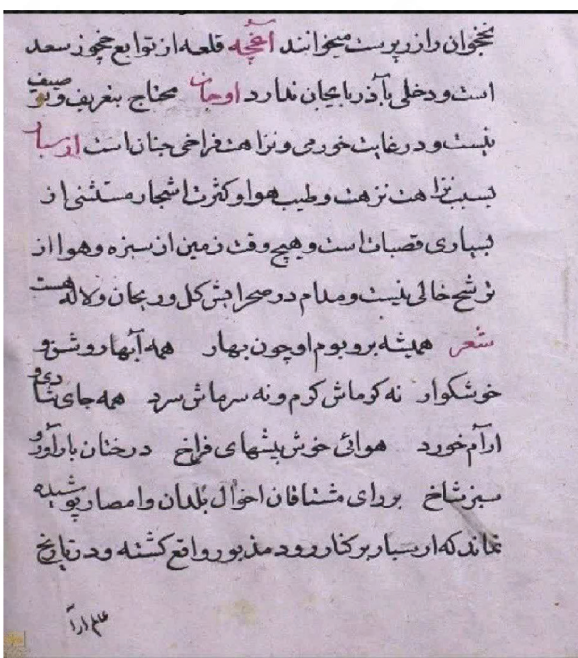 نخجوان را زیر پست میخوانند آغچه قلعه از توابع چخور سعد
است و دخلی بآذربایجان ندارد اوجان محتاج بتعریف و توصیف
نیست و در غایت خورمی و نزاهت فراخی جنان است ارسبار
بسبب نزاهت نزهت و طیب هوا و کثرت اشجار مستثنی از
بسیاری قصبات است و هیچ وقت زمین از سبزه و هوا از
ترشح خالی نیست و مدام در صحرایش کل و ریحان و لاله هست
شعر همیشه بر و بوم او چون بهار همه آبها روشن و
خوشکوار نه کرماش کرم و نه سرماش سرد همه جای شادی و
ارام خورد هوائی خوش بیشهای فراخ درختان بارآور و
سبز شاخ بر رای مشتاقان احوال بلدان و امصار پوشیده
نماند که ارسبار بر کنار رود مذبور واقع کشته و در تاریخ
علم ارا